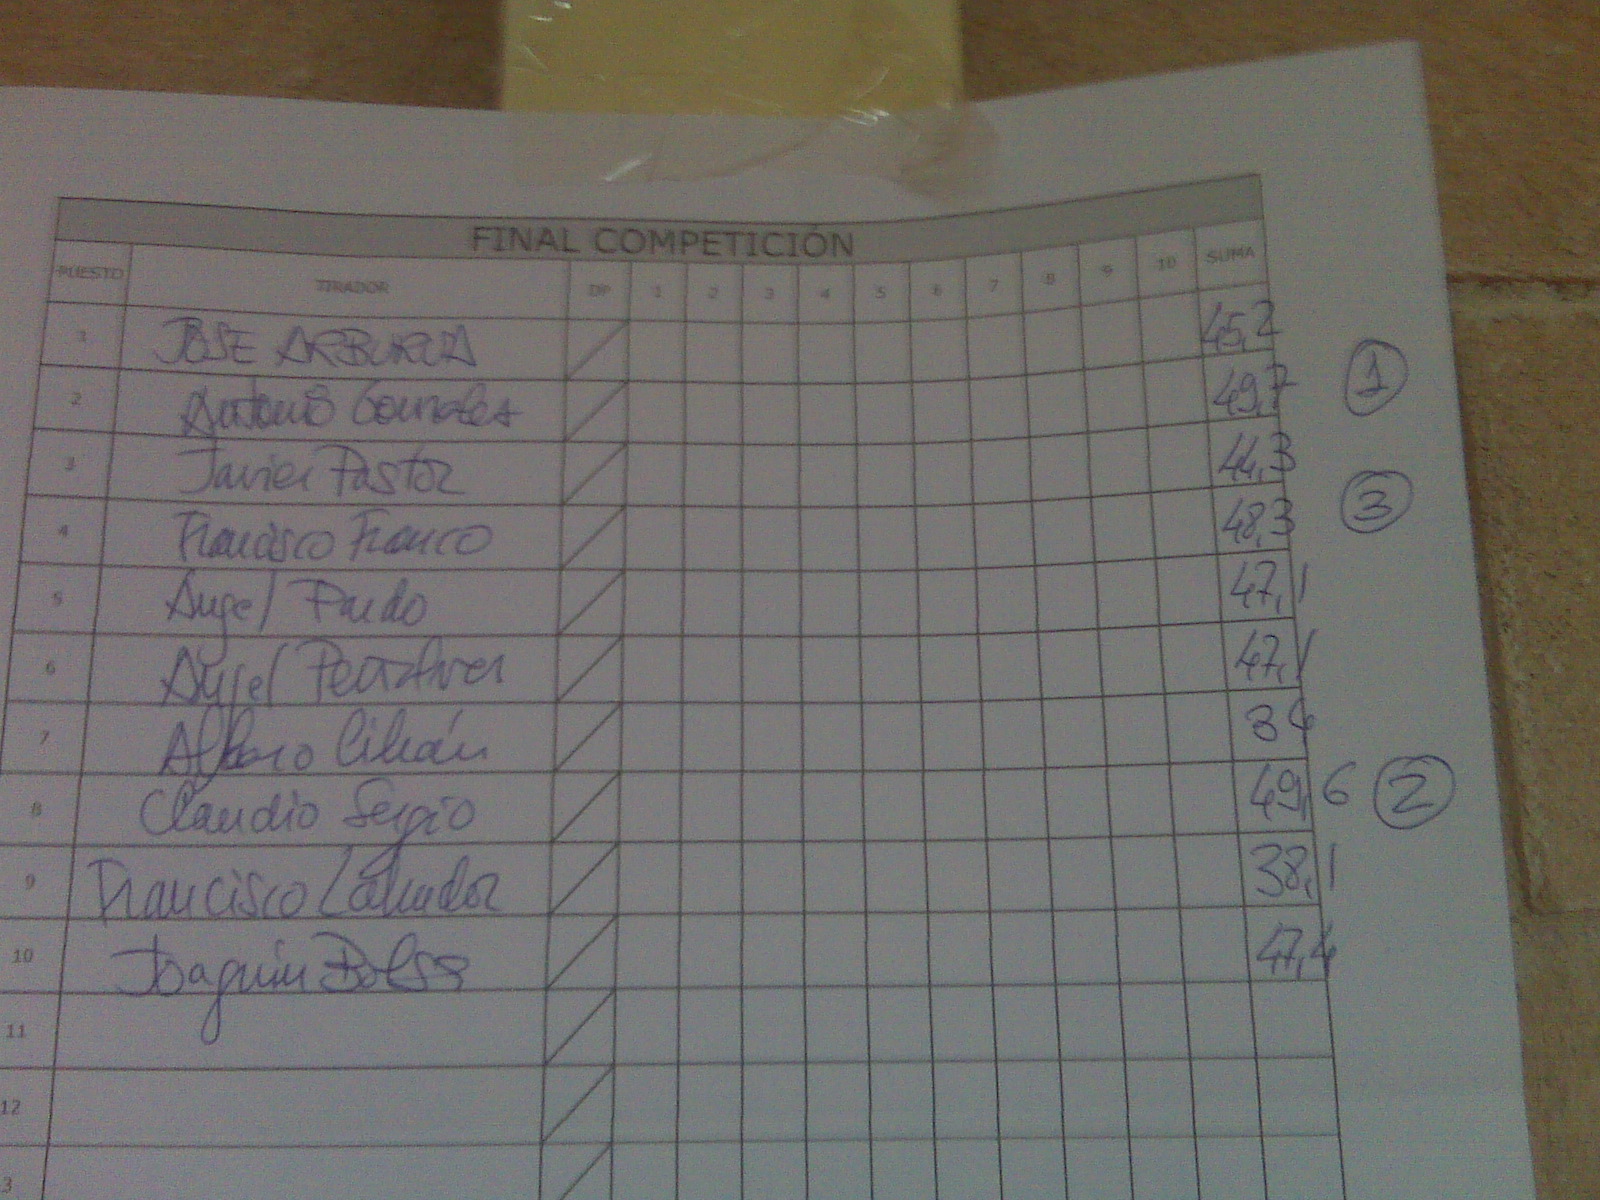 FINAL COMPETICIÓN
PUESTO TIRADOR DP 1 2 3 4 5 6 7 8 9 10 SUMA
1 JOSE 45,2
2 Antonio Gonzalez 49,7 1
3 Javier Pastor 44,3
4 Francisco Franco 48,3 3
5 Angel Pardo 47,1
6 Angel 47,1
7 Alvaro 34
8 Claudio Sergio 49,6 2
9 Francisco 38,1
10 Joaquin Bolsa 47,4
11
12
3